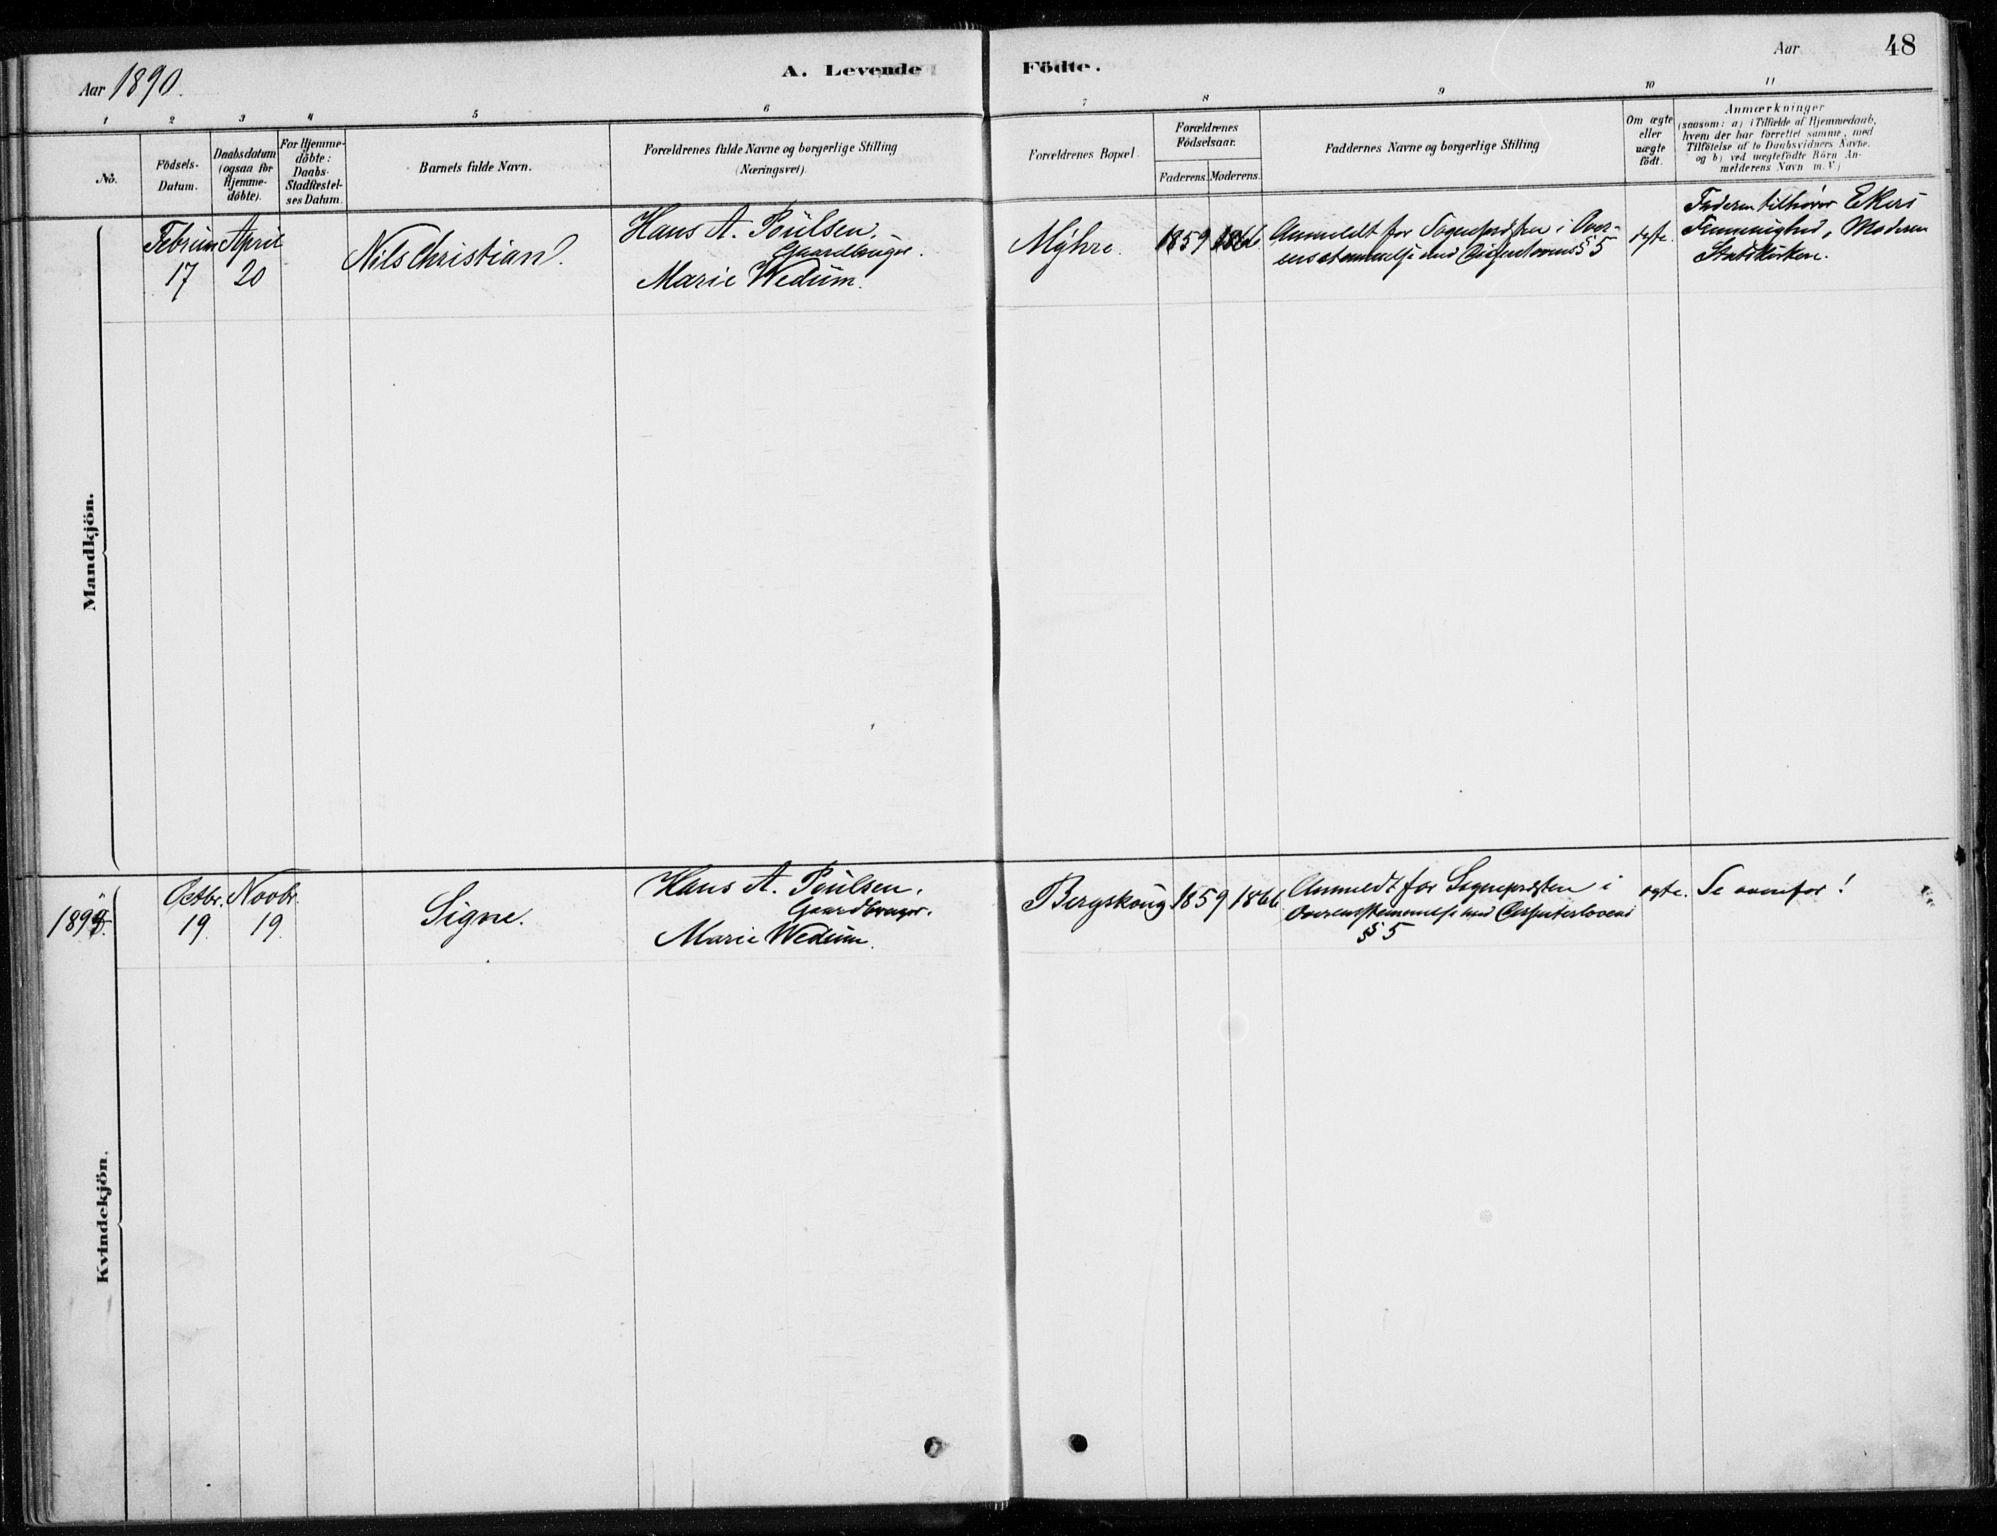 Aar 1890.
A. Levende
Födte.
Aar
48
1
2
3
4
5
6
7
8
9
10
11
No.
Födsels-
Datum.
Daabsdatum
(ogsaa for
Hjemme-
döbte).
For Hjemme-
döbte:
Daabs-
Stadfæstel-
ses Datum.
Barnets fulde Navn.
Forældrenes fulde Navne og borgerlige Stilling
(Næringsvei).
Forældrenes Bopæl.
Forældrenes
Födselsaar.
Faderens.
Moderens.
Faddernes Navne og borgerlige Stilling
Om ægte
eller
uægte
födt.
Anmærkninger
(saasom: a) i Tilfælde af Hjemmedaab,
hvem der har forrettet samme, med
Tilföielse af to Daabsvidners Navne.
og b) ved uægtefödte Börn An-
melderens Navn m. V.)
Mandkjön.
Februar
17
April
20
Nils Christian.
Hans A. Poulsen.
Gaardbruger.
Marie Wedum.
Myhre.
1859
1866
Anmeldt for Sognepræsten i Over-
ensstemmelse med §5
ægte.
Faderen tilhører Ekers
Frimenighed, Moderen
Statskirken.
Kvindekjön.
Octbr.
19.
Novbr.
19.
Signe.
Hans A. Poulsen.
Gaardbruger.
Marie Wedum.
Bergskoug
1859
1866.
Anmeldt for Sognepræsten i
Overensstemmelse med Dissenterlovens
§ 5
ægte.
Se ovenfor!